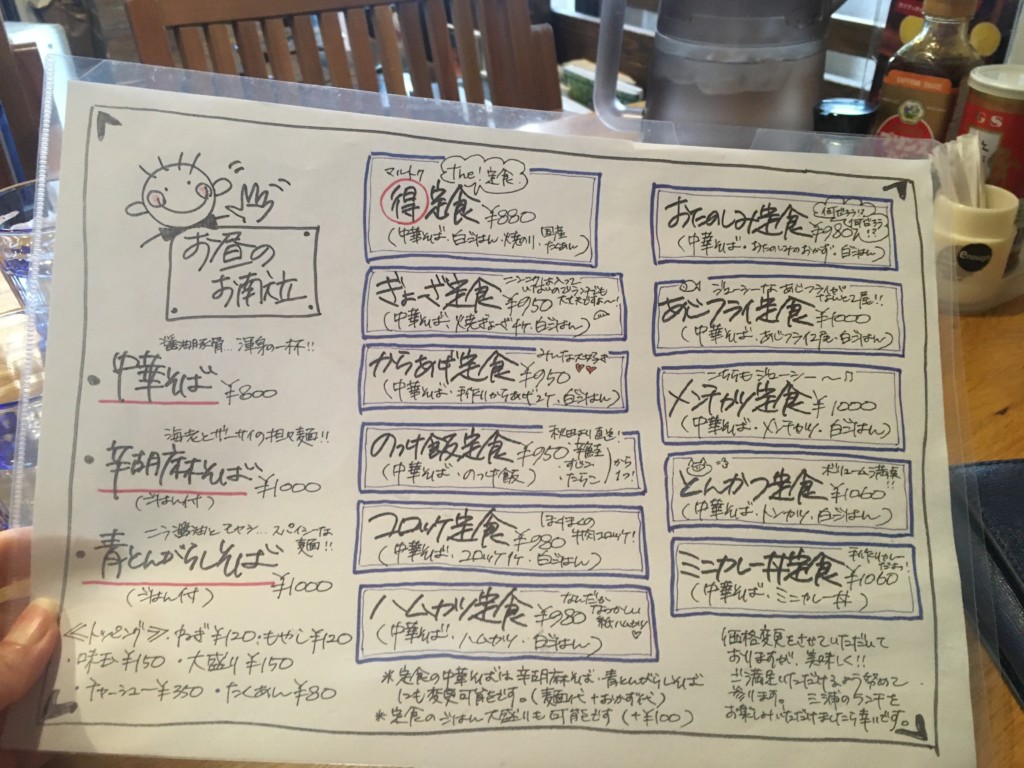 お昼の
お献立
醤油豚骨…渾身の一杯!!
・中華そば ¥800
海老とザーサイの担々麺!!
・辛胡麻そば ¥1000
(ごはん付)
ニラ醤油とモヤシ…スパイシーな
麺!!
・青とんがらしそば ¥1000
(ごはん付)
≪トッピング≫・ねぎ¥120・もやし¥120
・味玉¥150 ・大盛り¥150
・チャーシュー¥350 ・たくあん¥80
マルトク
the!定食
得定食 ¥880
(中華そば・白ごはん・焼のり・国産たくあん)
ニンニクは入って
いないので
ぎょーざ定食 ¥950
(中華そば・焼ぎょーざ4ケ・白ごはん)
みんな大好き
からあげ定食 ¥950
(中華そば・手作りからあげ2ケ・白ごはん)
秋田より直送!
のっけ飯定食 ¥950
・すじこ
・たらこ
から
1つ!
(中華そば・のっけ飯)
ほくほくの
牛肉コロッケ!
コロッケ定食 ¥980
(中華そば・コロッケ1ケ・白ごはん)
なんだか
なつかしい
紙ハムカツ
ハムカツ定食 ¥980
(中華そば・ハムカツ・白ごはん)
おたのしみ定食 ¥980
(中華そば・おたのしみのおかず・白ごはん)
ジューシーなあじフライが
なんと2尾!!
あじフライ定食 ¥1000
(中華そば・あじフライ2尾・白ごはん)
こちらもジューシー〜♫
メンチカツ定食 ¥1000
(中華そば・メンチカツ・白ごはん)
ボリューム満点!!
とんかつ定食 ¥1060
(中華そば・トンカツ・白ごはん)
手作りカレー
だよ!
ミニカレー丼定食 ¥1060
(中華そば・ミニカレー丼)
※定食の中華そばは辛胡麻そば・青とんがらしそば
にも変更可能です。(麺代+おかず代)
※定食のごはん大盛りも可能です(+¥100)
価格変更をさせていただいて
おりますが、美味しく!!
ご満足いただけるよう努めて
参ります。 三浦のランチを
お楽しみいただけましたら幸いです。